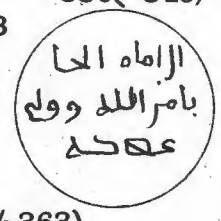 3
الامام الحا
بامر الله وولي
عهده
363)